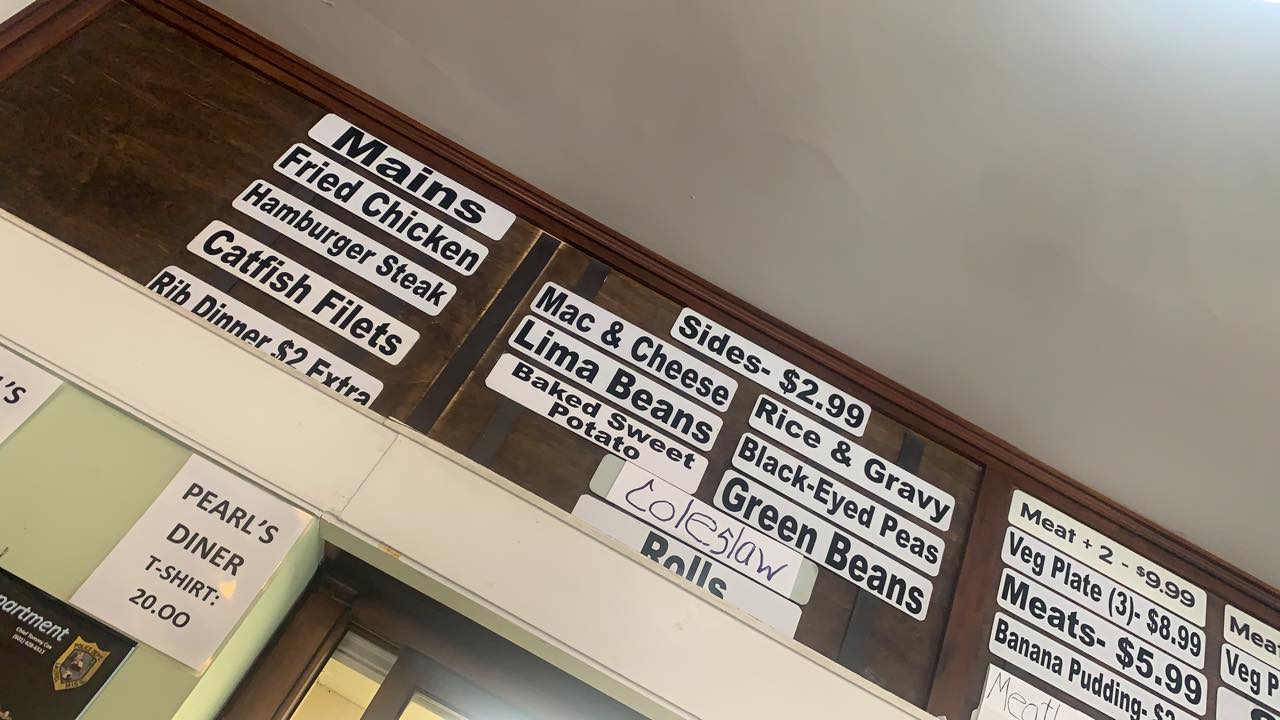 Mains
Fried Chicken
Hamburger Steak
Catfish Filets
Rib Dinner $2 Extra
Sides- $2.99
Mac & Cheese
Lima Beans
Baked Sweet
Potato
Coleslaw
Rolls
Rice & Gravy
Black-Eyed Peas
Green Beans
Meat + 2 - $9.99
Veg Plate (3)- $8.99
Meats- $5.99
Banana Pudding-
Veg P
'S
PEARL'S
DINER
T-SHIRT:
20.00
partment